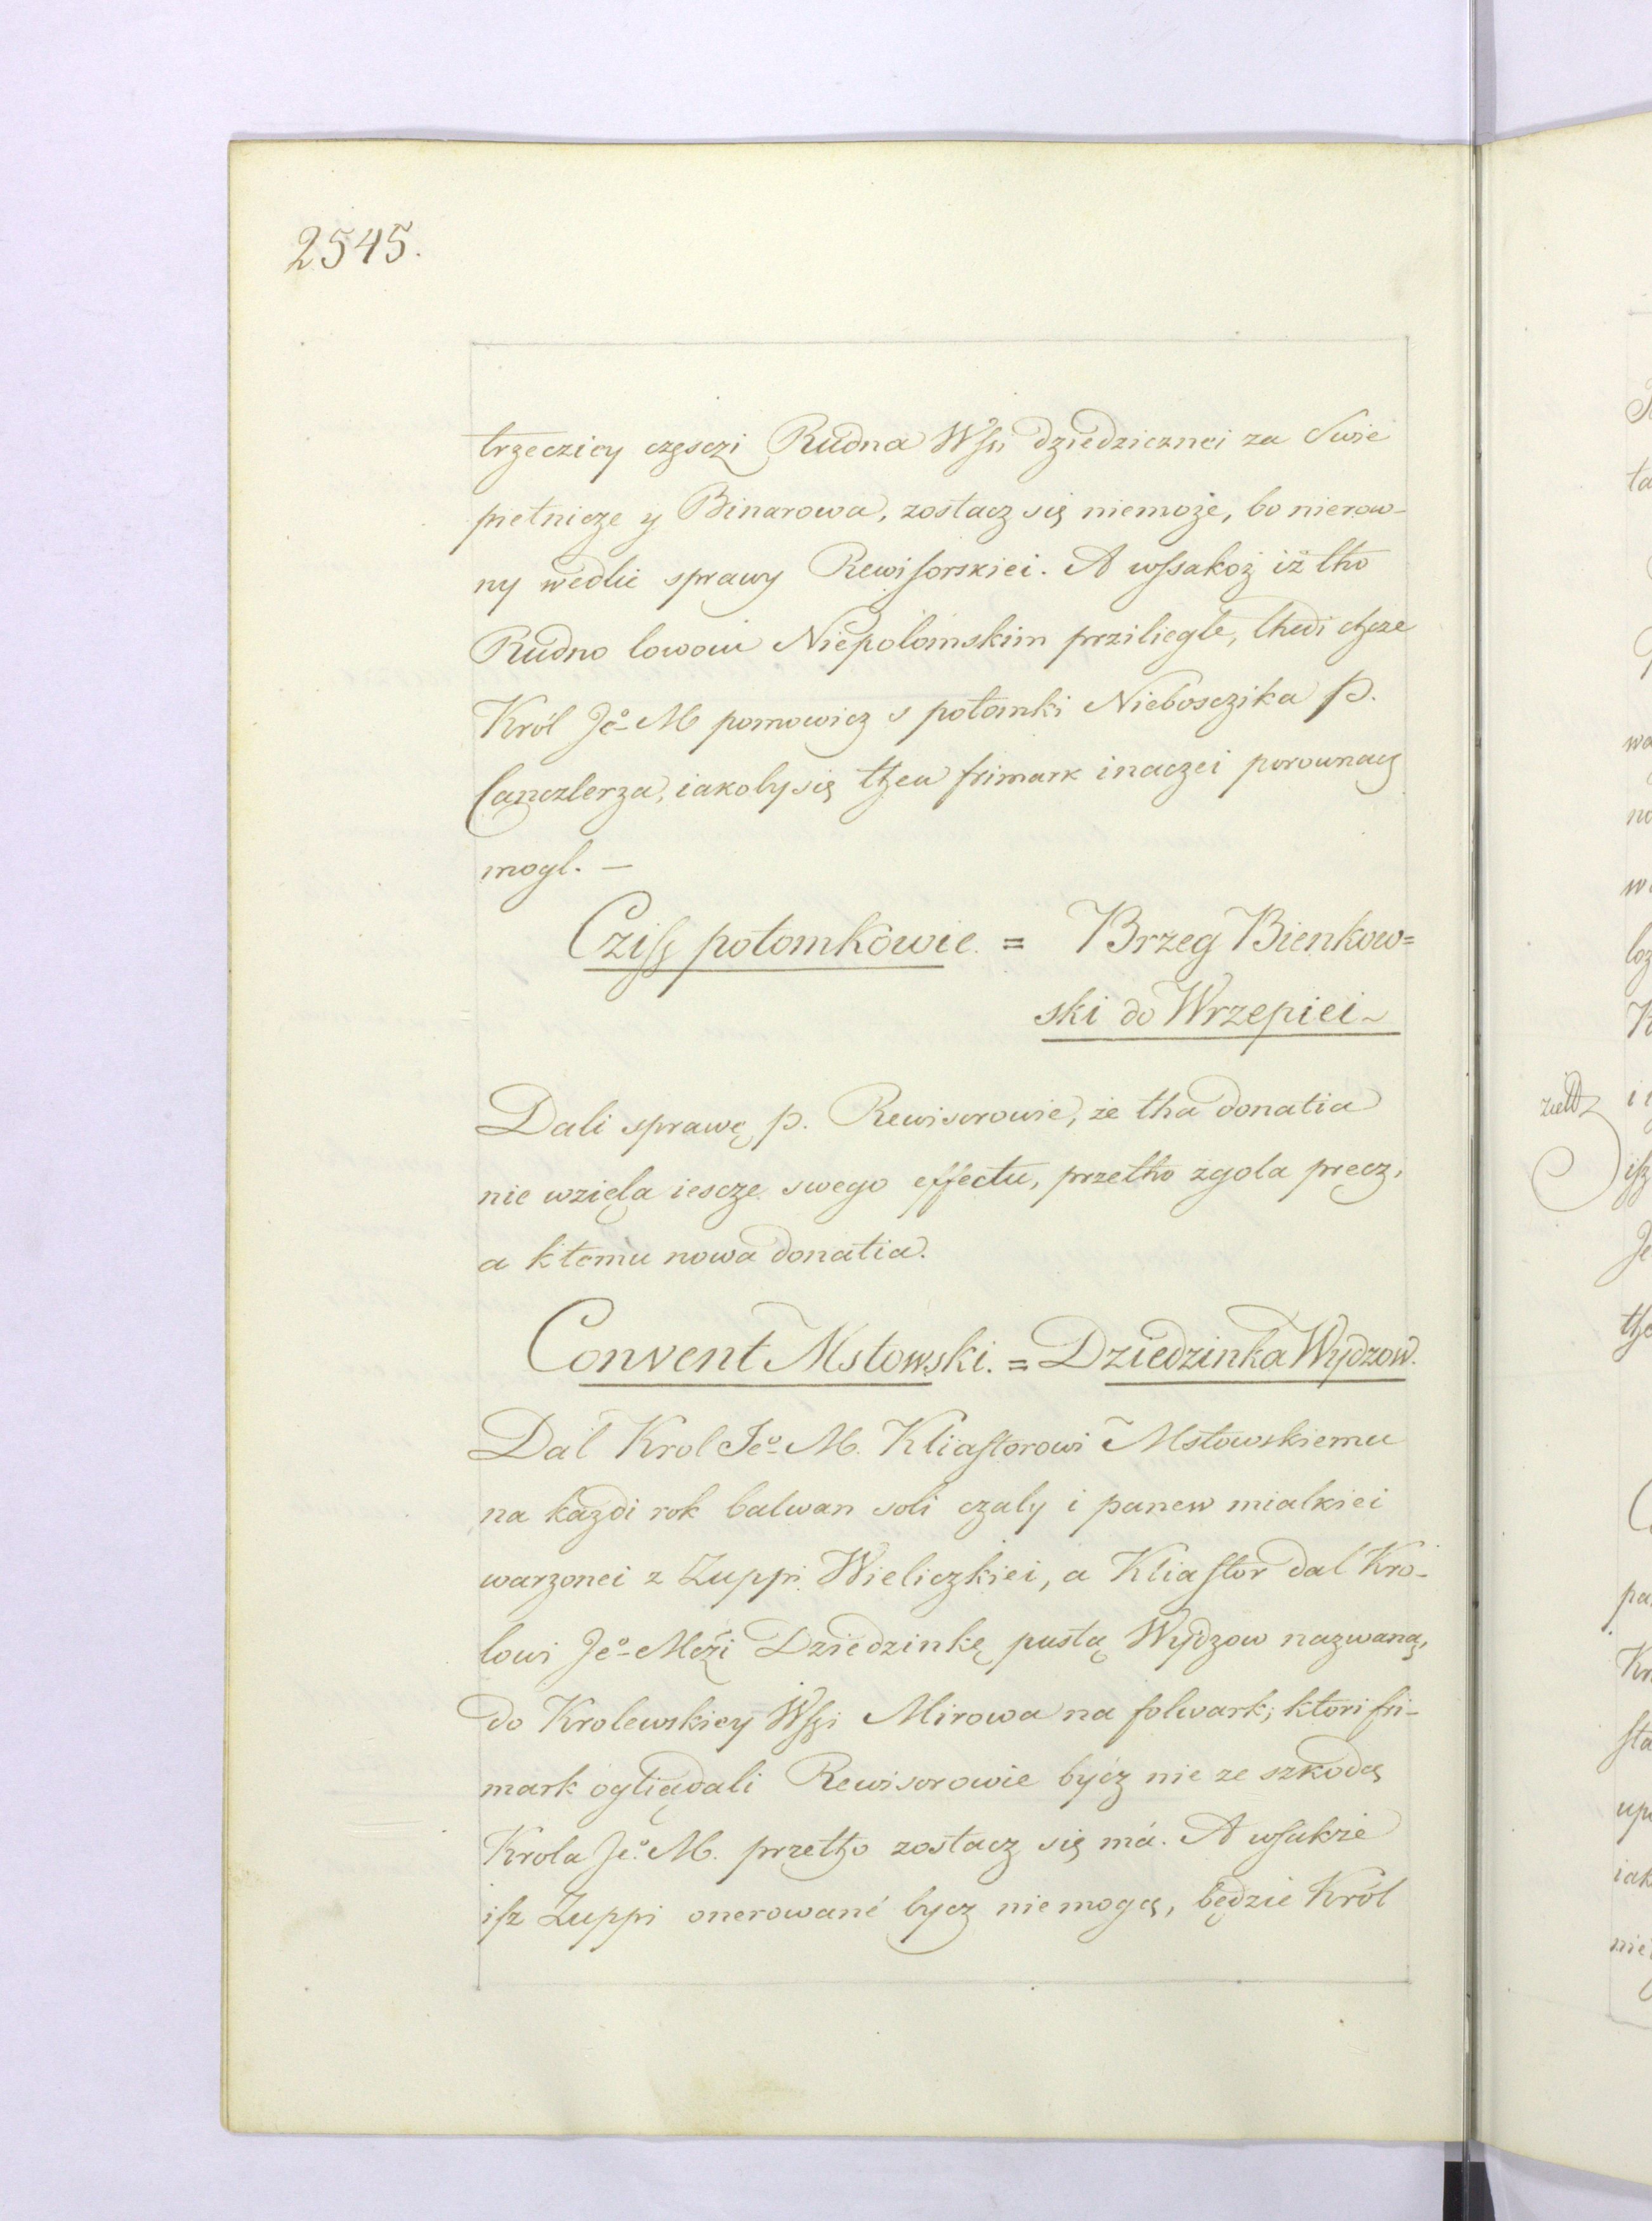 2545.
trzecziey częsczi Rudna Wsi dziedzicznei za Swie
pietnicze y Binarowa, zostacz się niemoże, bo nierow-
ny wedlie sprawy Rewisorskiei. A wssakoż iż tho
Rudno lowom Niepolomskim przilegle, thedi chcze
Król Jeº M pomowicz s potomki Nieboszika p.
Canczlerza, iakoby się then frimark inaczei porownacz
mogl. —
Czisz potomkowie. = Brzeg Bienkow=
ski do Wrzepiei ~
Dali sprawę p. Rewisorowie, że tha donatia
nie wzięla iescze swego effectu, przetho zgola precz,
a ktemu nowa donatia.
Convent Mstowski. = Dziedzinka Wydzow.
Dal Krol Jeº M. Kliastorowi Mstowskiemu
na każdi rok balwan soli czaly i panew mialkiei
warzonei z Zuppi Wieliczkiei, a Kliastor dal Kro-
lowi Jeº Mczi Dziedzinkę pustą Wydzow nazwaną,
do Krolewskiey Wszi Mirowa na folwark; ktori fri-
mark ogliądali Rewisorowie bycz nie ze szkodą
Krola Jeº M. przetho zostacz się má. A wssakże
isz Zuppi onerowané bycz niemogą, będzie Król